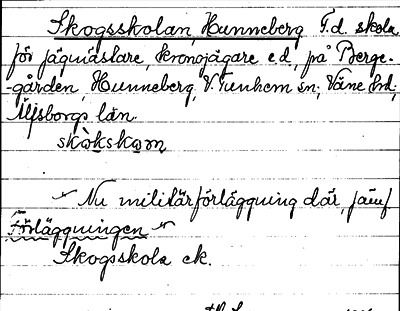 Skogsskolan, Hunneberg F.d. skola
för jägmästare, kronojägare e.d., på Berga-
-gården, Hunneberg, V. Tunhem sn, Väne hd,
Älfsborgs län.
skòkskọ̀m
"Nu militärförläggning där, jämf
Förläggningen"
Skogsskola ek.